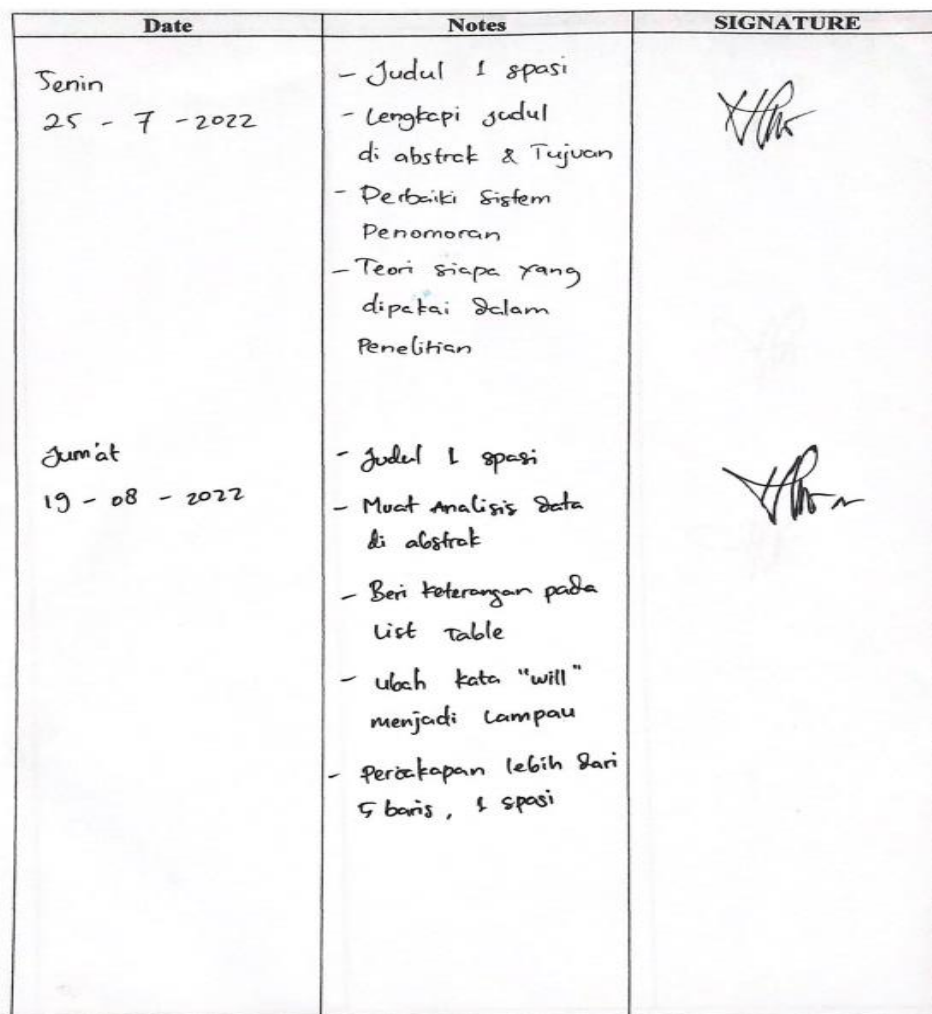 Date Notes SIGNATURE
Senin
25 - 7 - 2022
- Judul 1 spasi
- Lengkapi judul
di abstrak & Tujuan
- Perbaiki Sistem
Penomoran
- Teori siapa yang
dipakai dalam
Penelitian
Jum'at
19 - 08 - 2022
- Judul 1 spasi
- Muat Analisis data
di abstrak
- Beri keterangan pada
List Table
- Ubah kata "will"
menjadi Lampau
- Percakapan lebih dari
5 baris, 1 spasi